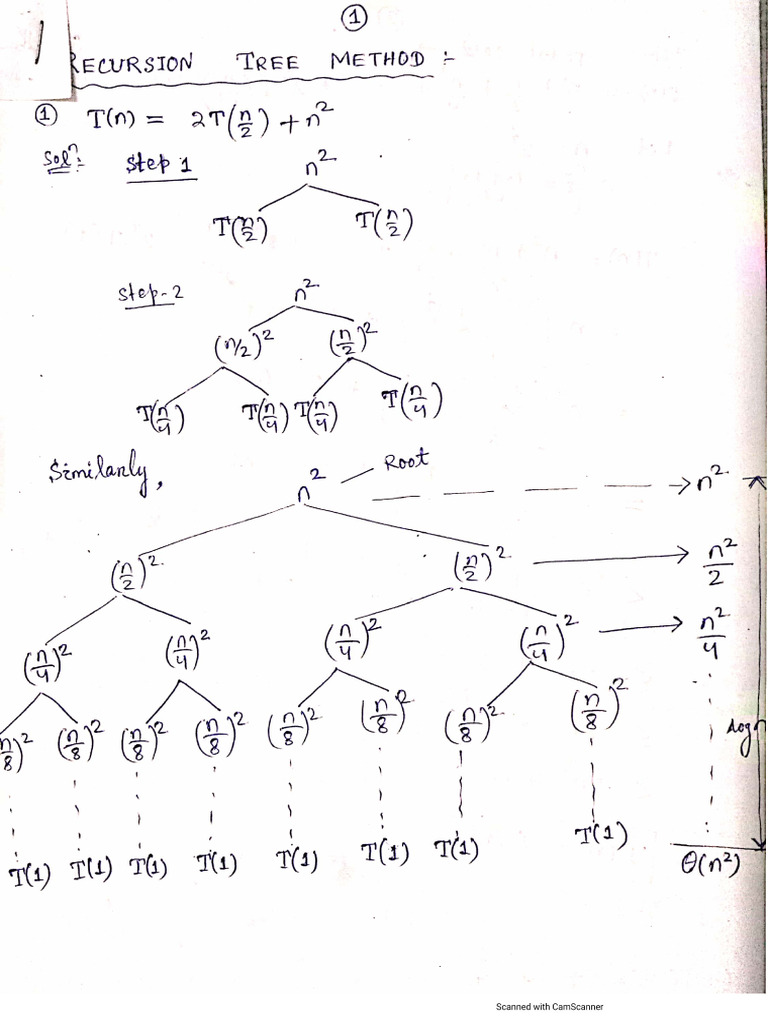 ①
RECURSION TREE METHOD :-
① T(n) = 2T(n/2) + n²
Solⁿ:- Step 1
n²
T(n/2) T(n/2)
Step-2
n²
(n/2)² (n/2)²
T(n/4) T(n/4) T(n/4) T(n/4)
Similarly,
Root
n² → n²
(n/2)² (n/2)² → n²/2
(n/4)² (n/4)² (n/4)² (n/4)² → n²/4
(n/8)² (n/8)² (n/8)² (n/8)² (n/8)² (n/8)² (n/8)² (n/8)²
logn
T(1) T(1) T(1) T(1) T(1) T(1) T(1) T(1)
θ(n²)
Scanned with CamScanner